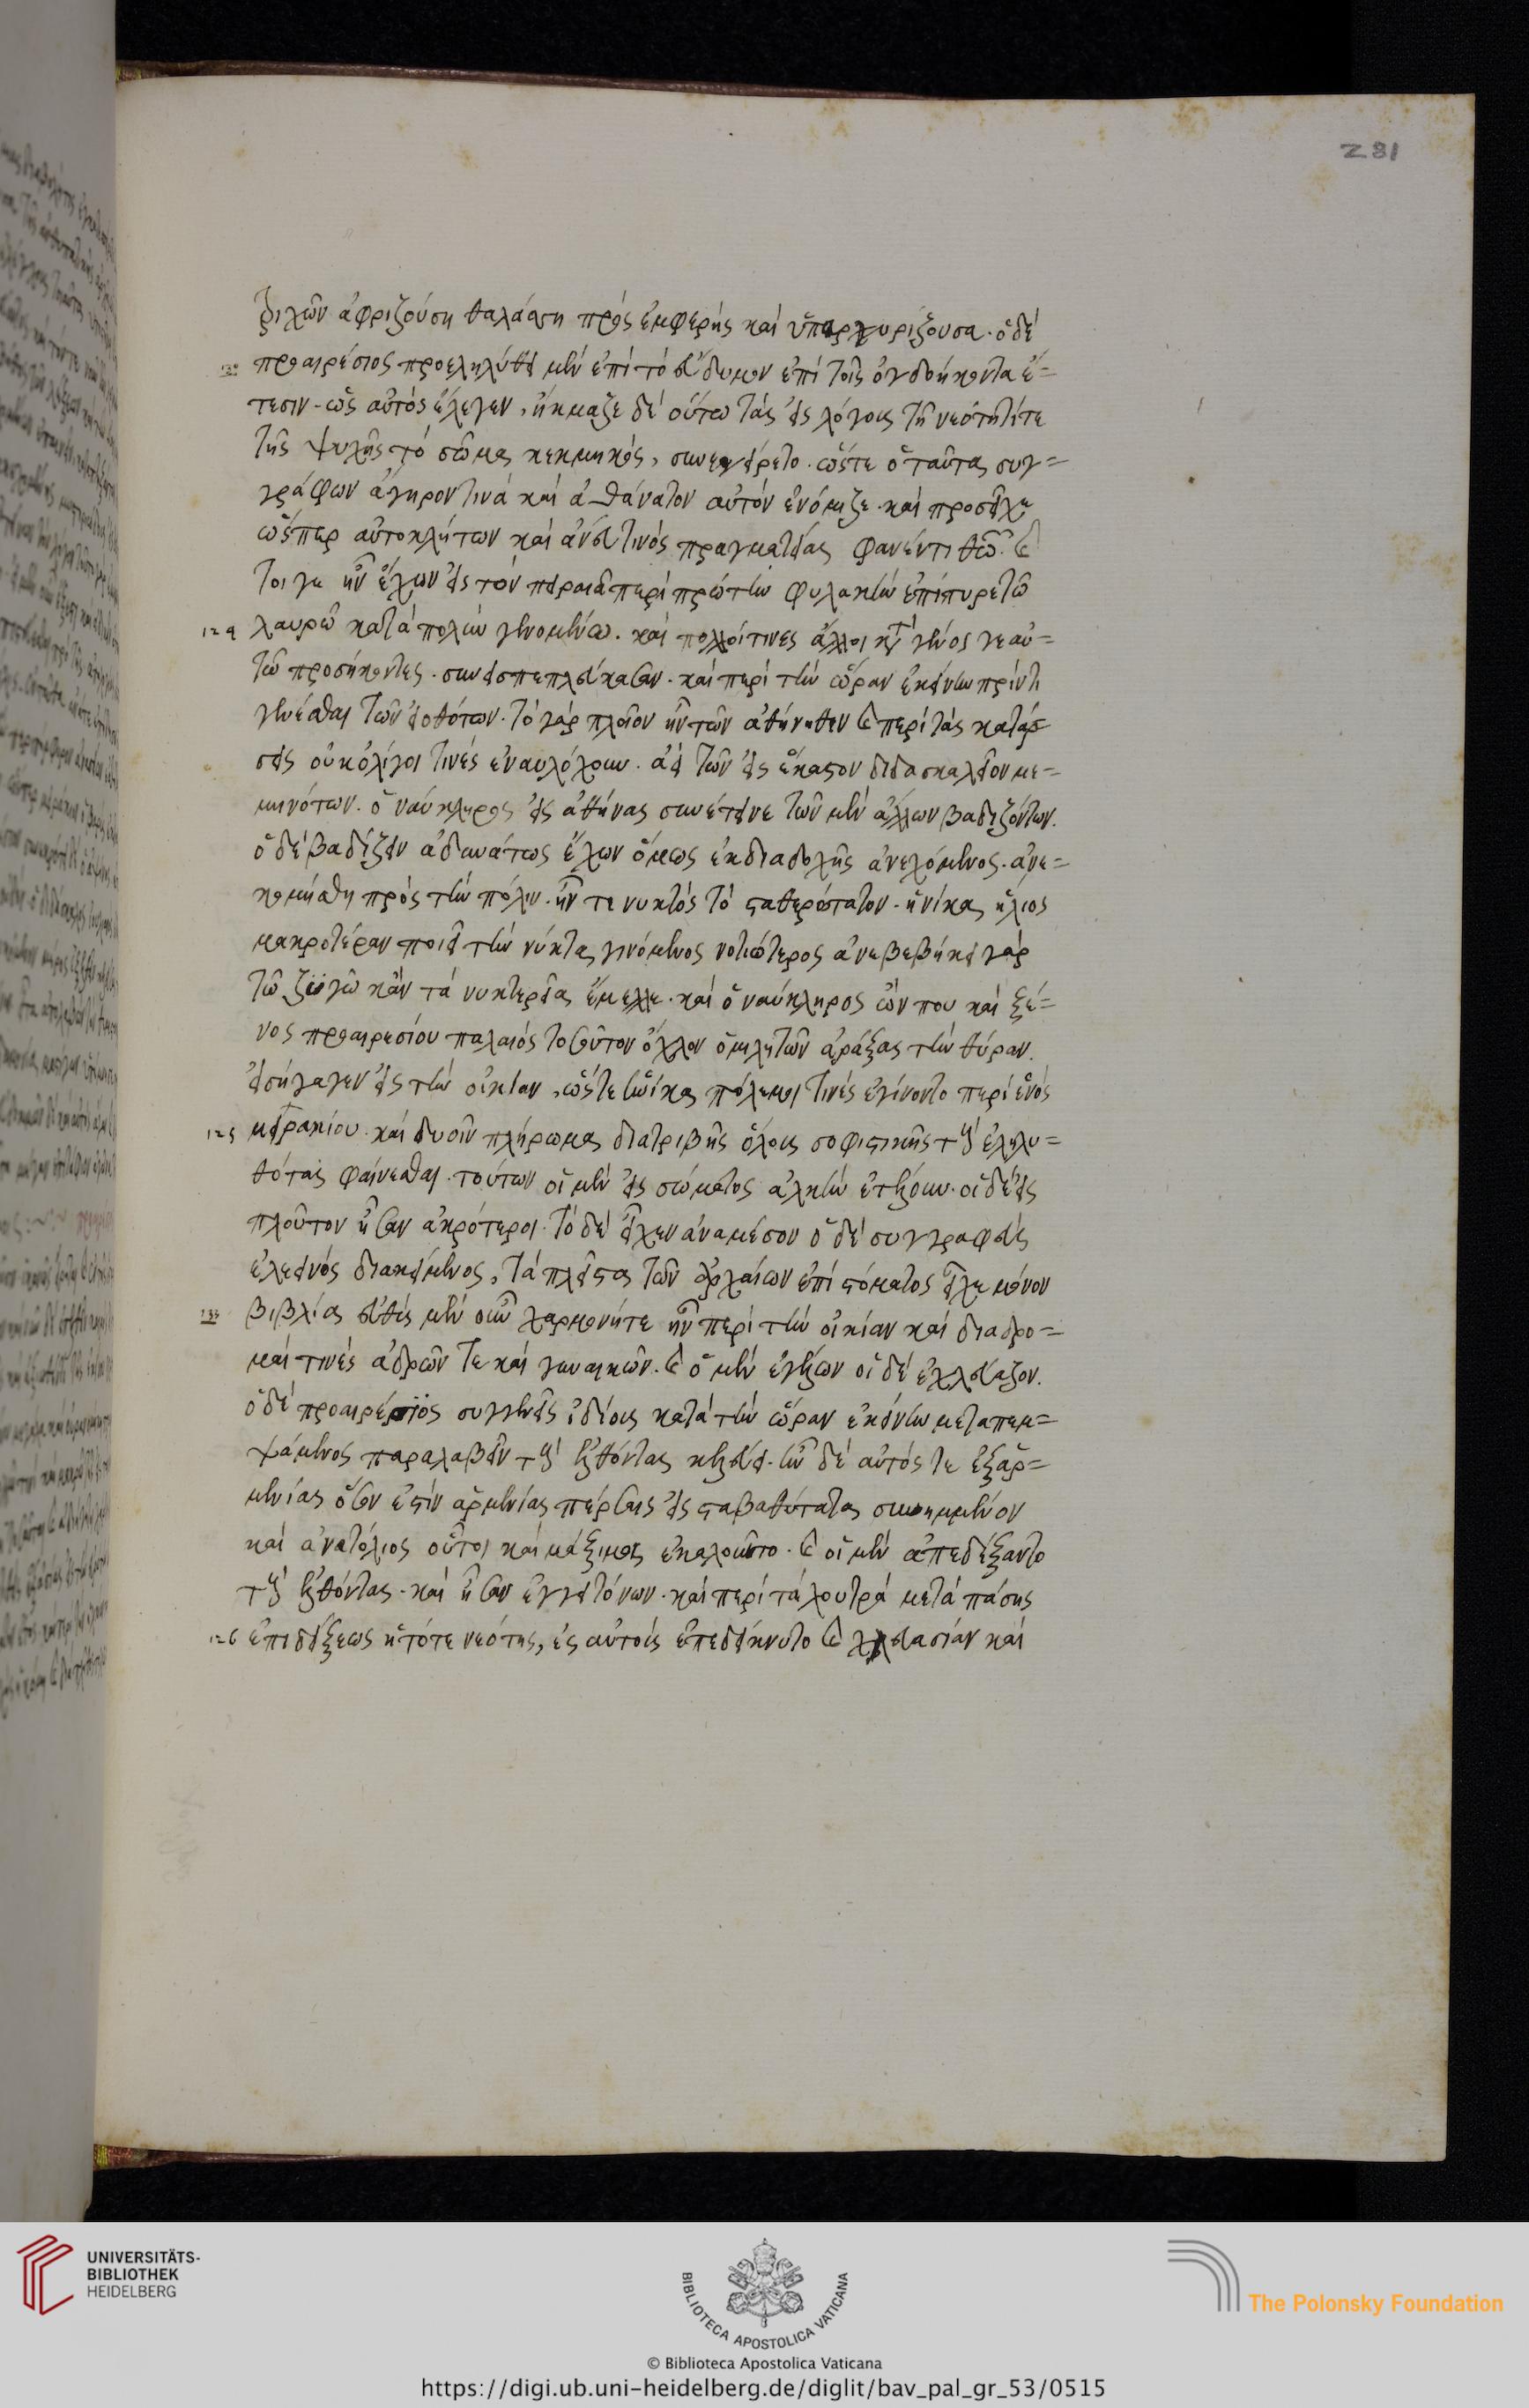 281
τριχῶν ἀφριζούση θαλάσση πρὸς ἐμφερὴς καὶ ὑπαργυρίζουσα. ὁ δὲ
προαιρέσιος προεληλύθει μὲν ἐπὶ τὸ ἕβδομον ἐπὶ τοῖς ὀγδοήκοντα ἔ=
τεσιν. ὡς αὐτὸς ἔλεγεν, ἤκμαζε δὲ οὕτω τὰς εἰς λόγους τῆ νεότητί τε
τῆς ψυχῆς τὸ σῶμα κεκμηκὸς, συνεγείρετο. ὥστε ὁ ταῦτα συγ=
γράφων ἀγήρον τινὰ καὶ ἀθάνατον αὐτὸν ἐνόμιζε. καὶ προσεῖχε
ὥσπερ αὐτοκλήτων καὶ ἄνευ τινὸς πραγματείας φανέντι θεῶ. καὶ
τοι γε ἦν ἔχων εἰς τὸν πειραιᾶ περὶ πρώτην φυλακὴν ἐπὶ πυρετῶ
129 λαυρῶ κατὰ πολὺν γενομένω. καὶ πολλοί τινες ἄλλοι κατὰ γένος γε αὐ=
τῶ προσήκοντες. συνεισπεπλεύκασαν. καὶ περὶ τὴν ὥραν ἐκείνην πρίν τι
γενέσθαι τῶν εἰωθότων. τὸ γὰρ πλοῖον ἦν τῶν ἀθήνηθεν καὶ περὶ τὰς κατάρ
σεις οὐκ ὀλίγοι τινὲς ἐναυλόχουν. ἀεὶ τῶν εἰς ἕκαστον διδασκαλεῖον με=
μηνότων. ὁ ναύκληρος εἰς ἀθήνας συνέτεινε τῶν μὲν ἄλλων βαδιζόντων.
ὁ δὲ βαδίζειν ἀδυνάτως ἔχων ὅμως ἐκ διαδοχῆς ἀνεχόμενος. ἀνε=
κομίσθη πρὸς τὴν πόλιν. ἦν τε νυκτὸς τὸ σταθερώτατον. ἡνίκα ἥλιος
μακροτέραν ποιεῖ τὴν νύκτα γινόμενος νοτιώτερος ἀνεβεβήκει γὰρ
τῶ ζυγῶ κἂν τὰ νυκτερεῖα ἔμελλε. καὶ ὁ ναύκληρος ὤν που καὶ ξέ=
νος προαιρεσίου παλαιὸς τοσοῦτον ὄχλον ὁμιλητῶν ἀράξας τὴν θύραν.
εἰσήγαγεν εἰς τὴν οἰκίαν, ὥστε ἡνίκα πόλεμοί τινες ἐγίνοντο περὶ ἑνὸς
125 μειρακίου. καὶ δυοῖν πλήρωμα διατριβῆς ὅλους σοφιστικῆς τοὺς ἐληλυ=
θότας φαίνεσθαι. τούτων οἱ μὲν εἰς σώματος ἀλκὴν ἐτέλουν. οἱ δὲ εἰς
πλοῦτον ἦσαν ἁκρότεροι. τὸ δὲ εἶχεν ἀναμέσον ὁ δὲ συγγραφεὺς
ἐλεεινὸς διακείμενος, τὰ πλεῖστα τῶν ἀρχαίων ἐπὶ στόματος εἶχε μόνον
βιβλία εὐθὺς μὲν οὖν χαρμονήτε ἦν περὶ τὴν οἰκίαν καὶ διαδρο=
μαί τινες ἀδρῶν τε καὶ γυναικῶν. καὶ ὁ μὲν ἐγέλων οἱ δὲ ἐχλεύαζον.
ὁ δὲ προαιρέσιος συγγενεῖς ἰδίους κατὰ τὴν ὥραν ἐκείνην μεταπεμ=
ψάμενος παραλαβεῖν τοὺς ἐλθόντας κελεύει. ἦν δὲ αὐτός τε ἐξ ἀρ=
μενίας ὅσον ἐστὶν ἀρμενίας πέρσαις εἰς τὰ βαθύτατα συνημμένον
καὶ ἀνατόλιος οὗτοι καὶ μάξιμος ἐκαλοῦντο. καὶ οἱ μὲν ἀπεδέξαντο
τοὺς ἐλθόντας. καὶ ἦσαν ἐγγειτόνων. καὶ περὶ τὰ λουτρὰ μετὰ πάσης
126 ἐπιδείξεως ἡ τότε νεότης, ἐς αὐτοὺς ἐπεδείκνυτο καὶ χλευασίαν καὶ
UNIVERSITÄTS-
BIBLIOTHEK
HEIDELBERG
BIBLIOTECA APOSTOLICA VATICANA
The Polonsky Foundation
© Biblioteca Apostolica Vaticana
https://digi.ub.uni-heidelberg.de/diglit/bav_pal_gr_53/0515